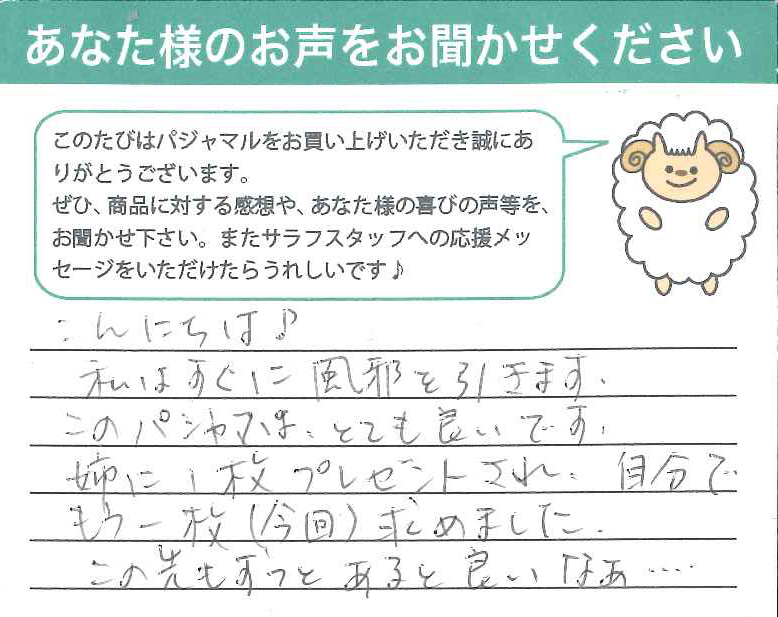 あなた様のお声をお聞かせください
このたびはパジャマルをお買い上げいただき誠にあ
りがとうございます。
ぜひ、商品に対する感想や、あなた様の喜びの声等を、
お聞かせ下さい。またサラフスタッフへの応援メッ
セージをいただけたらうれしいです♪
こんにちは♪
私はすぐに風邪を引きます。
このパジャマは、とても良いです。
姉に1枚プレゼントされ、自分で
もう一枚(今回)求めました。
この先もずっとあると良いなあ……